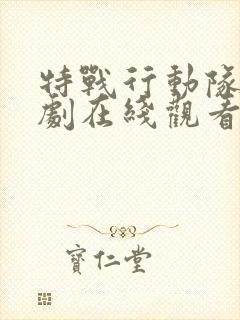 特戰行動隊
劇在綫觀看
寶仁堂